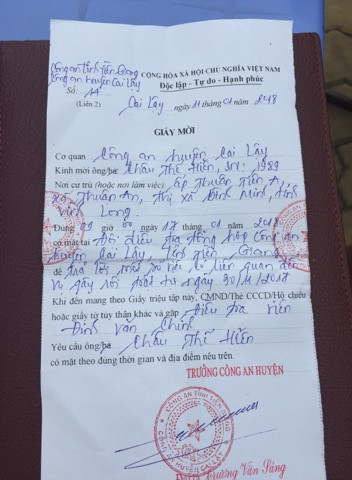 Công an tỉnh Tiền Giang
Công an huyện Cai Lậy
CỘNG HÒA XÃ HỘI CHỦ NGHĨA VIỆT NAM
Độc lập - Tự do - Hạnh phúc
Số: 14
(Liên 2)
Cai Lậy, ngày 11 tháng 01 năm 2018
GIẤY MỜI
Cơ quan Công an huyện Cai Lậy
Kính mời ông/bà: Châu Thế Hiển, SN: 1989
Nơi cư trú (hoặc nơi làm việc): ấp Thuận Tiến A,
xã Thuận An, thị xã Bình Minh, tỉnh
Vĩnh Long.
Đúng 09 giờ 00 ngày 17 tháng 01 năm 2018
có mặt tại Đội điều tra tổng hợp Công an
huyện Cai Lậy, tỉnh Tiền Giang
để trả lời một số nội dung liên quan đến
vụ gây rối trật tự ngày 30/11/2017
Khi đến mang theo Giấy triệu tập này, CMND/Thẻ CCCD/Hộ chiếu
hoặc giấy tờ tùy thân khác và gặp Điều tra viên
Đinh Văn Chinh
Yêu cầu ông/bà Châu Thế Hiển
có mặt theo đúng thời gian và địa điểm nêu trên.
TRƯỞNG CÔNG AN HUYỆN
CÔNG AN TỈNH TIỀN GIANG
CÔNG AN HUYỆN CAI LẬY
Trương Văn Sáng